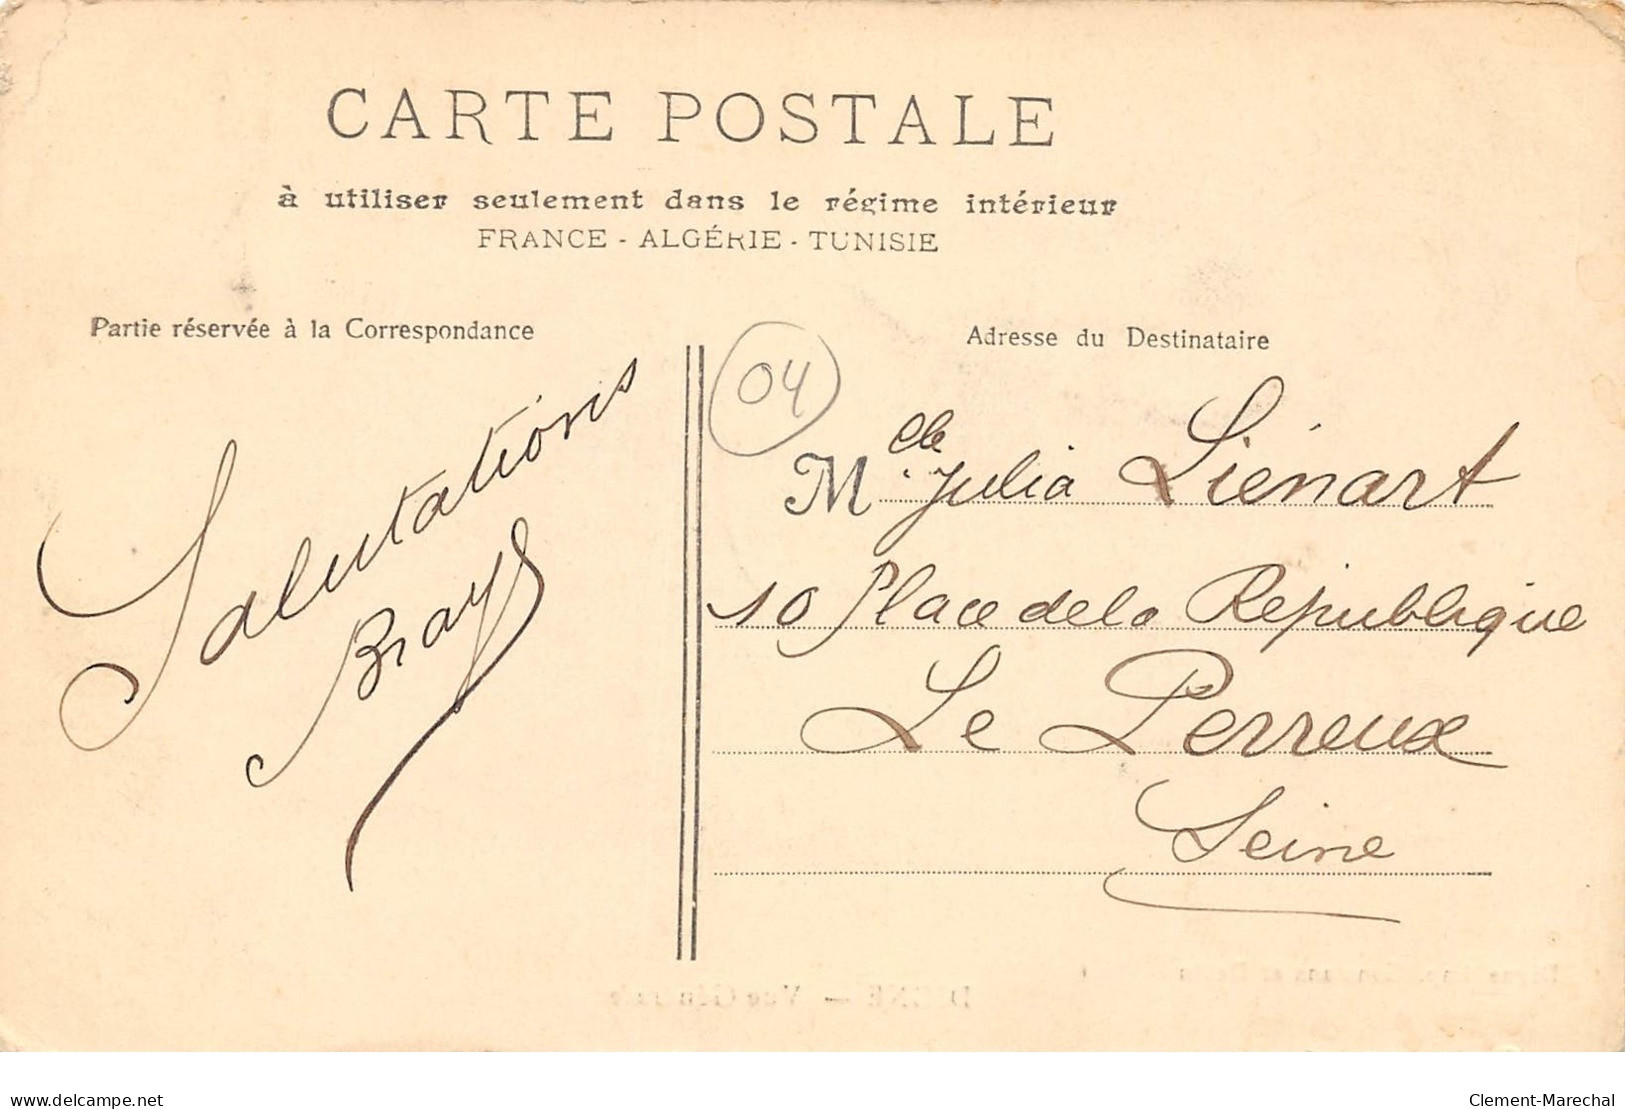 CARTE POSTALE
à utiliser seulement dans le régime intérieur
FRANCE - ALGÉRIE - TUNISIE
Partie réservée à la Correspondance
Salutations
Bray
Adresse du Destinataire
04
Mlle Julia Liénart
10 Place de la République
Le Perreux
Seine
DIGNE — Vue Générale
delcampe.net
Clement-Marechal